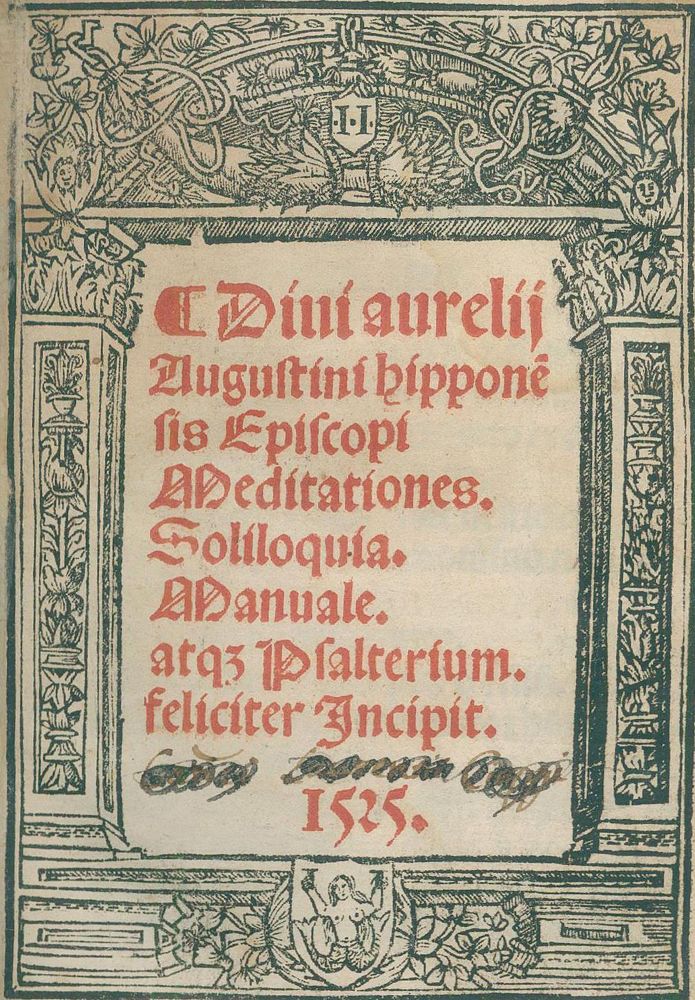 I·I
⸿ Diui aurelij
Auguſtini hipponē
ſis Epiſcopi
Meditationes.
Soliloquia.
Manuale.
atqꝫ Pſalterium.
feliciter Incipit.
1525.